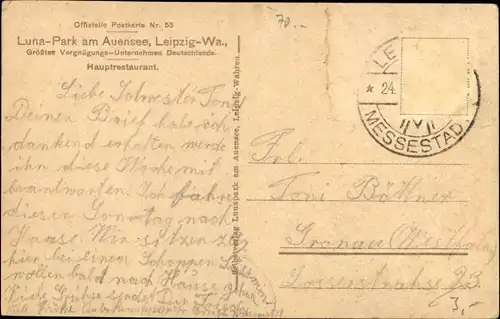 70.-
Offizielle Postkarte Nr. 53
Luna-Park am Auensee, Leipzig-Wa.,
Größtes Vergnügungs-Unternehmen Deutschlands.
Hauptrestaurant.
LE
* 24.
MESSESTAD
Liebe Schwester Toni
Deinen Brief habe ich
dankend erhalten werde
ihn diese Woche mit
beantworten. Ich fahre
diesen Sonntag nach
Hause. Wir sitzen
hier bei einem Schoppen
wollen bald nach Hause
Viele Grüsse sendet Dir
Selbstverlag Lunapark am Auensee, Leipzig-Wahren
Frl.
Toni Böttner
Gronau (Westfalen)
Losserstrasse 23
3,-